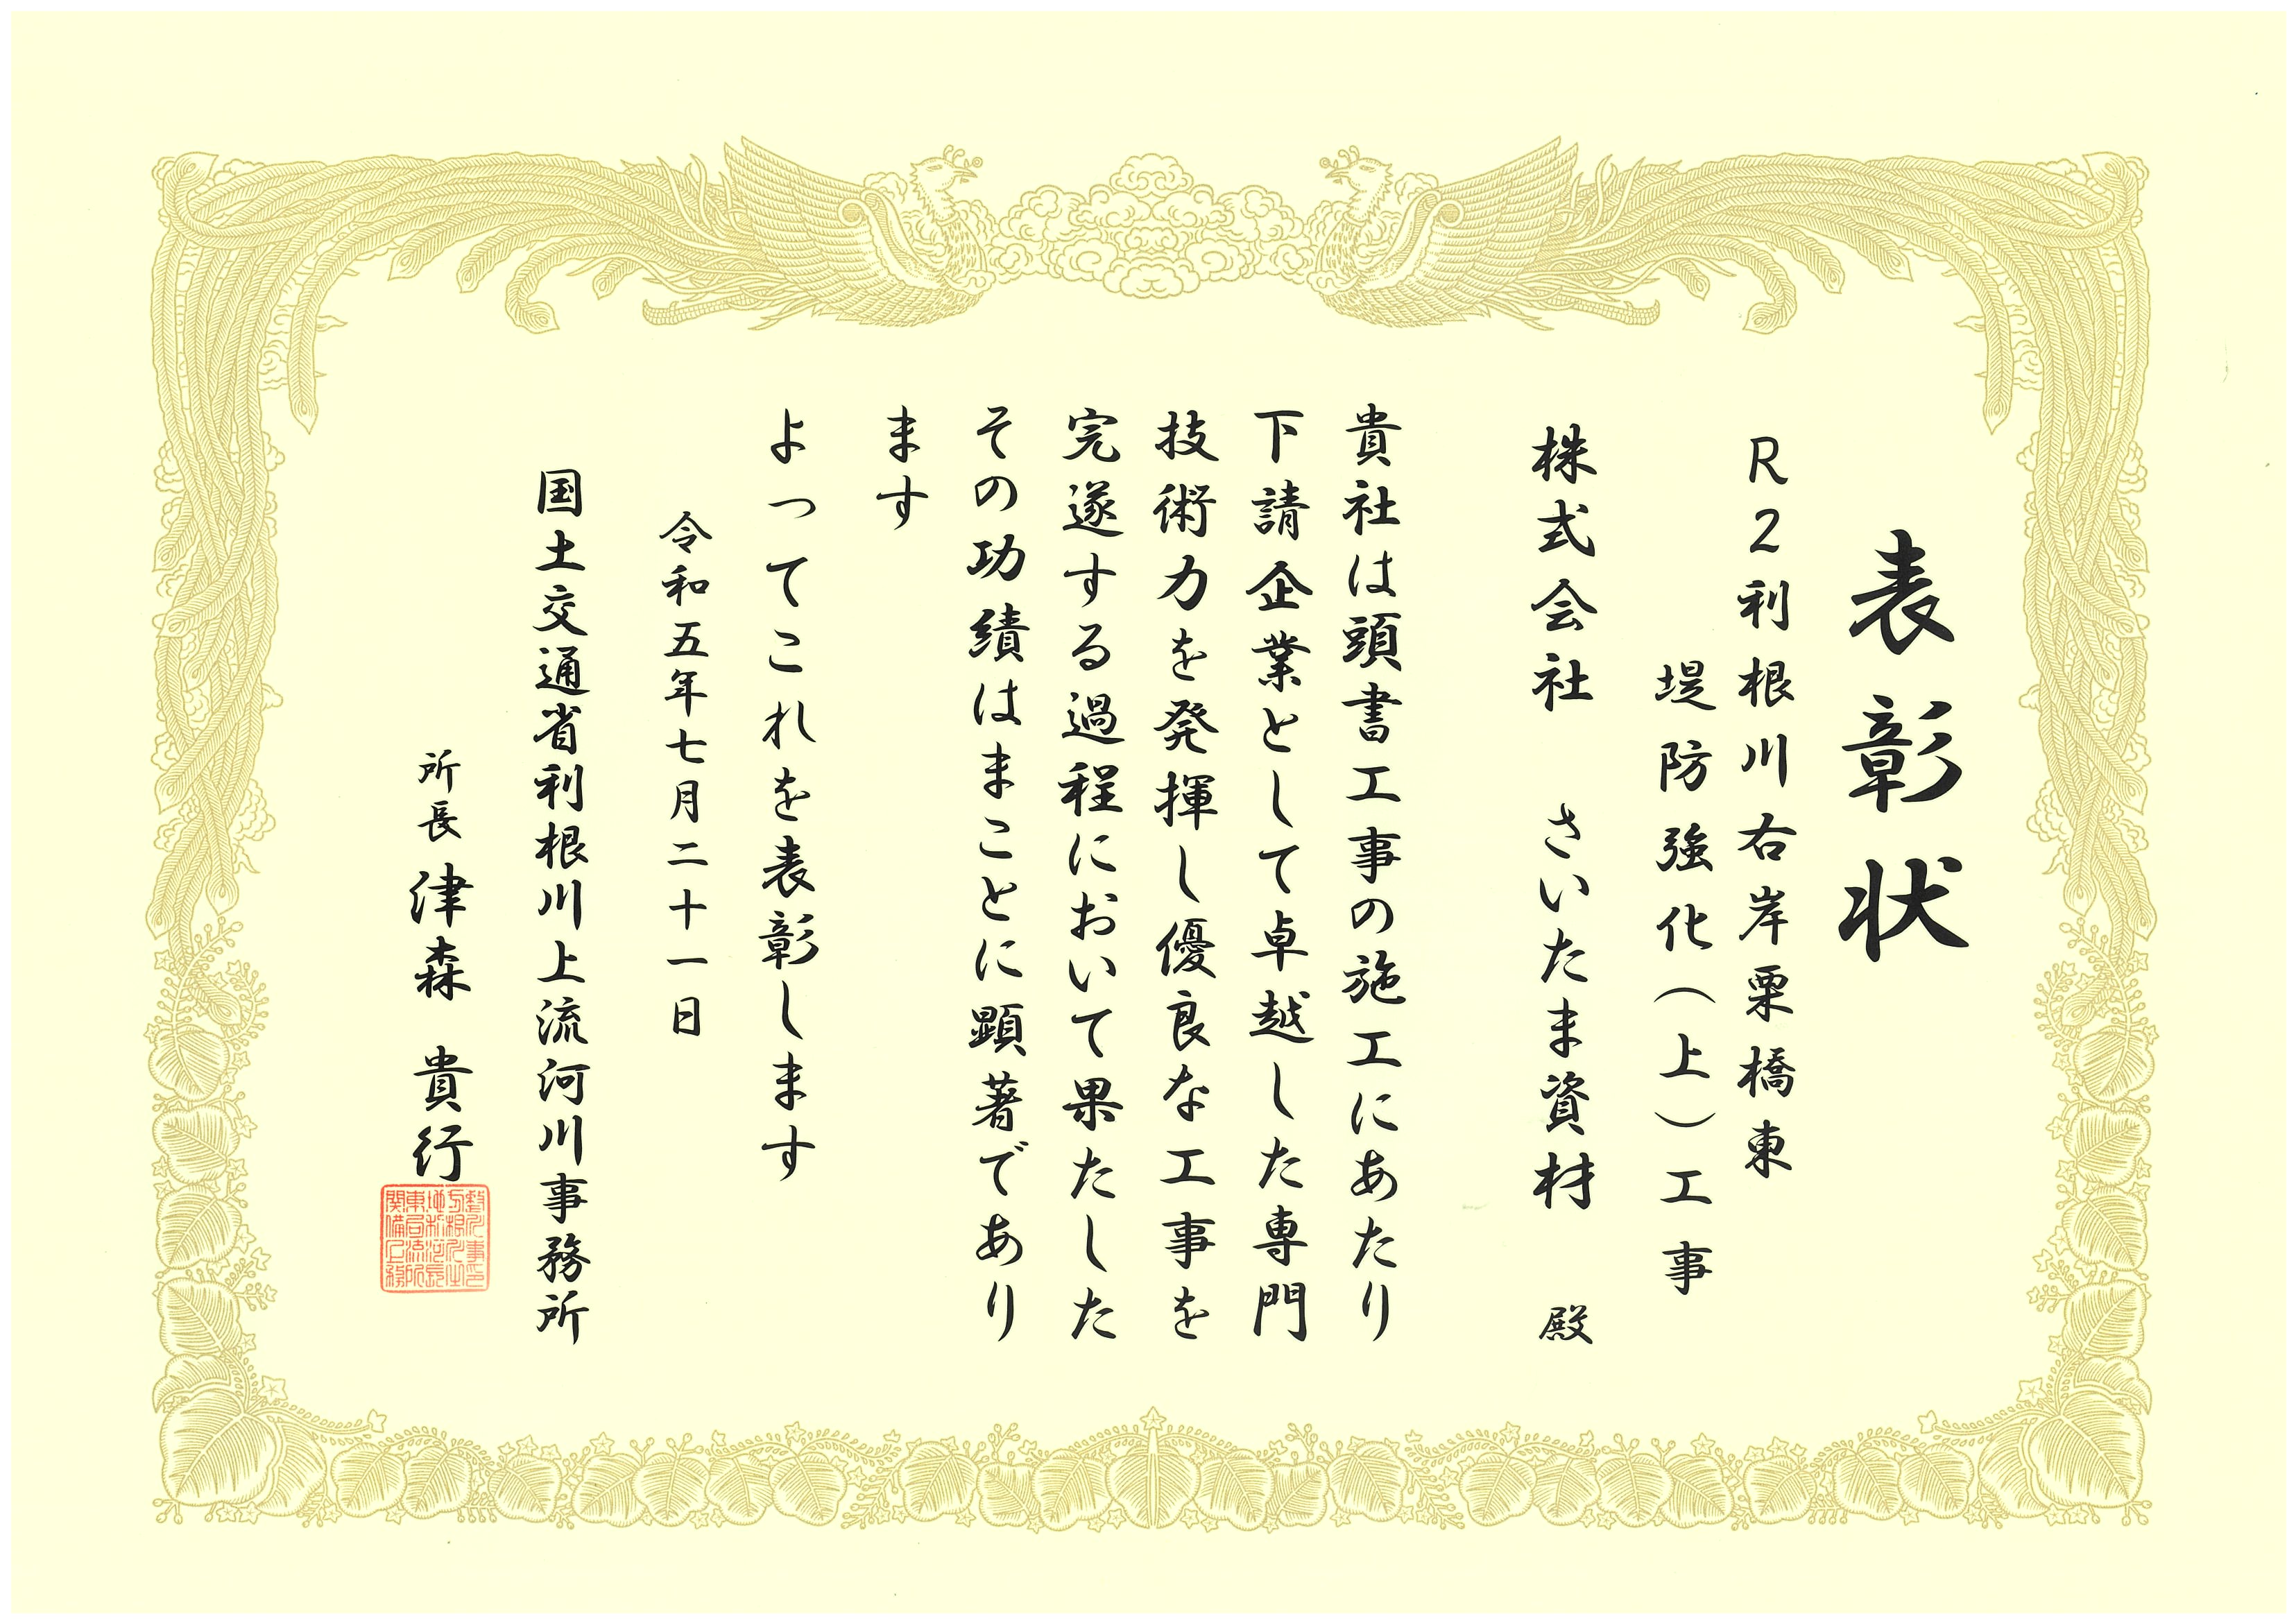 表彰状
R2利根川右岸栗橋東
堤防強化(上)工事
株式会社 さいたま資材 殿
貴社は頭書工事の施工にあたり
下請企業として卓越した専門
技術力を発揮し優良な工事を
完遂する過程において果たした
その功績はまことに顕著であり
ます
よってこれを表彰します
令和五年七月二十一日
国土交通省利根川上流河川事務所
所長 津森 貴行